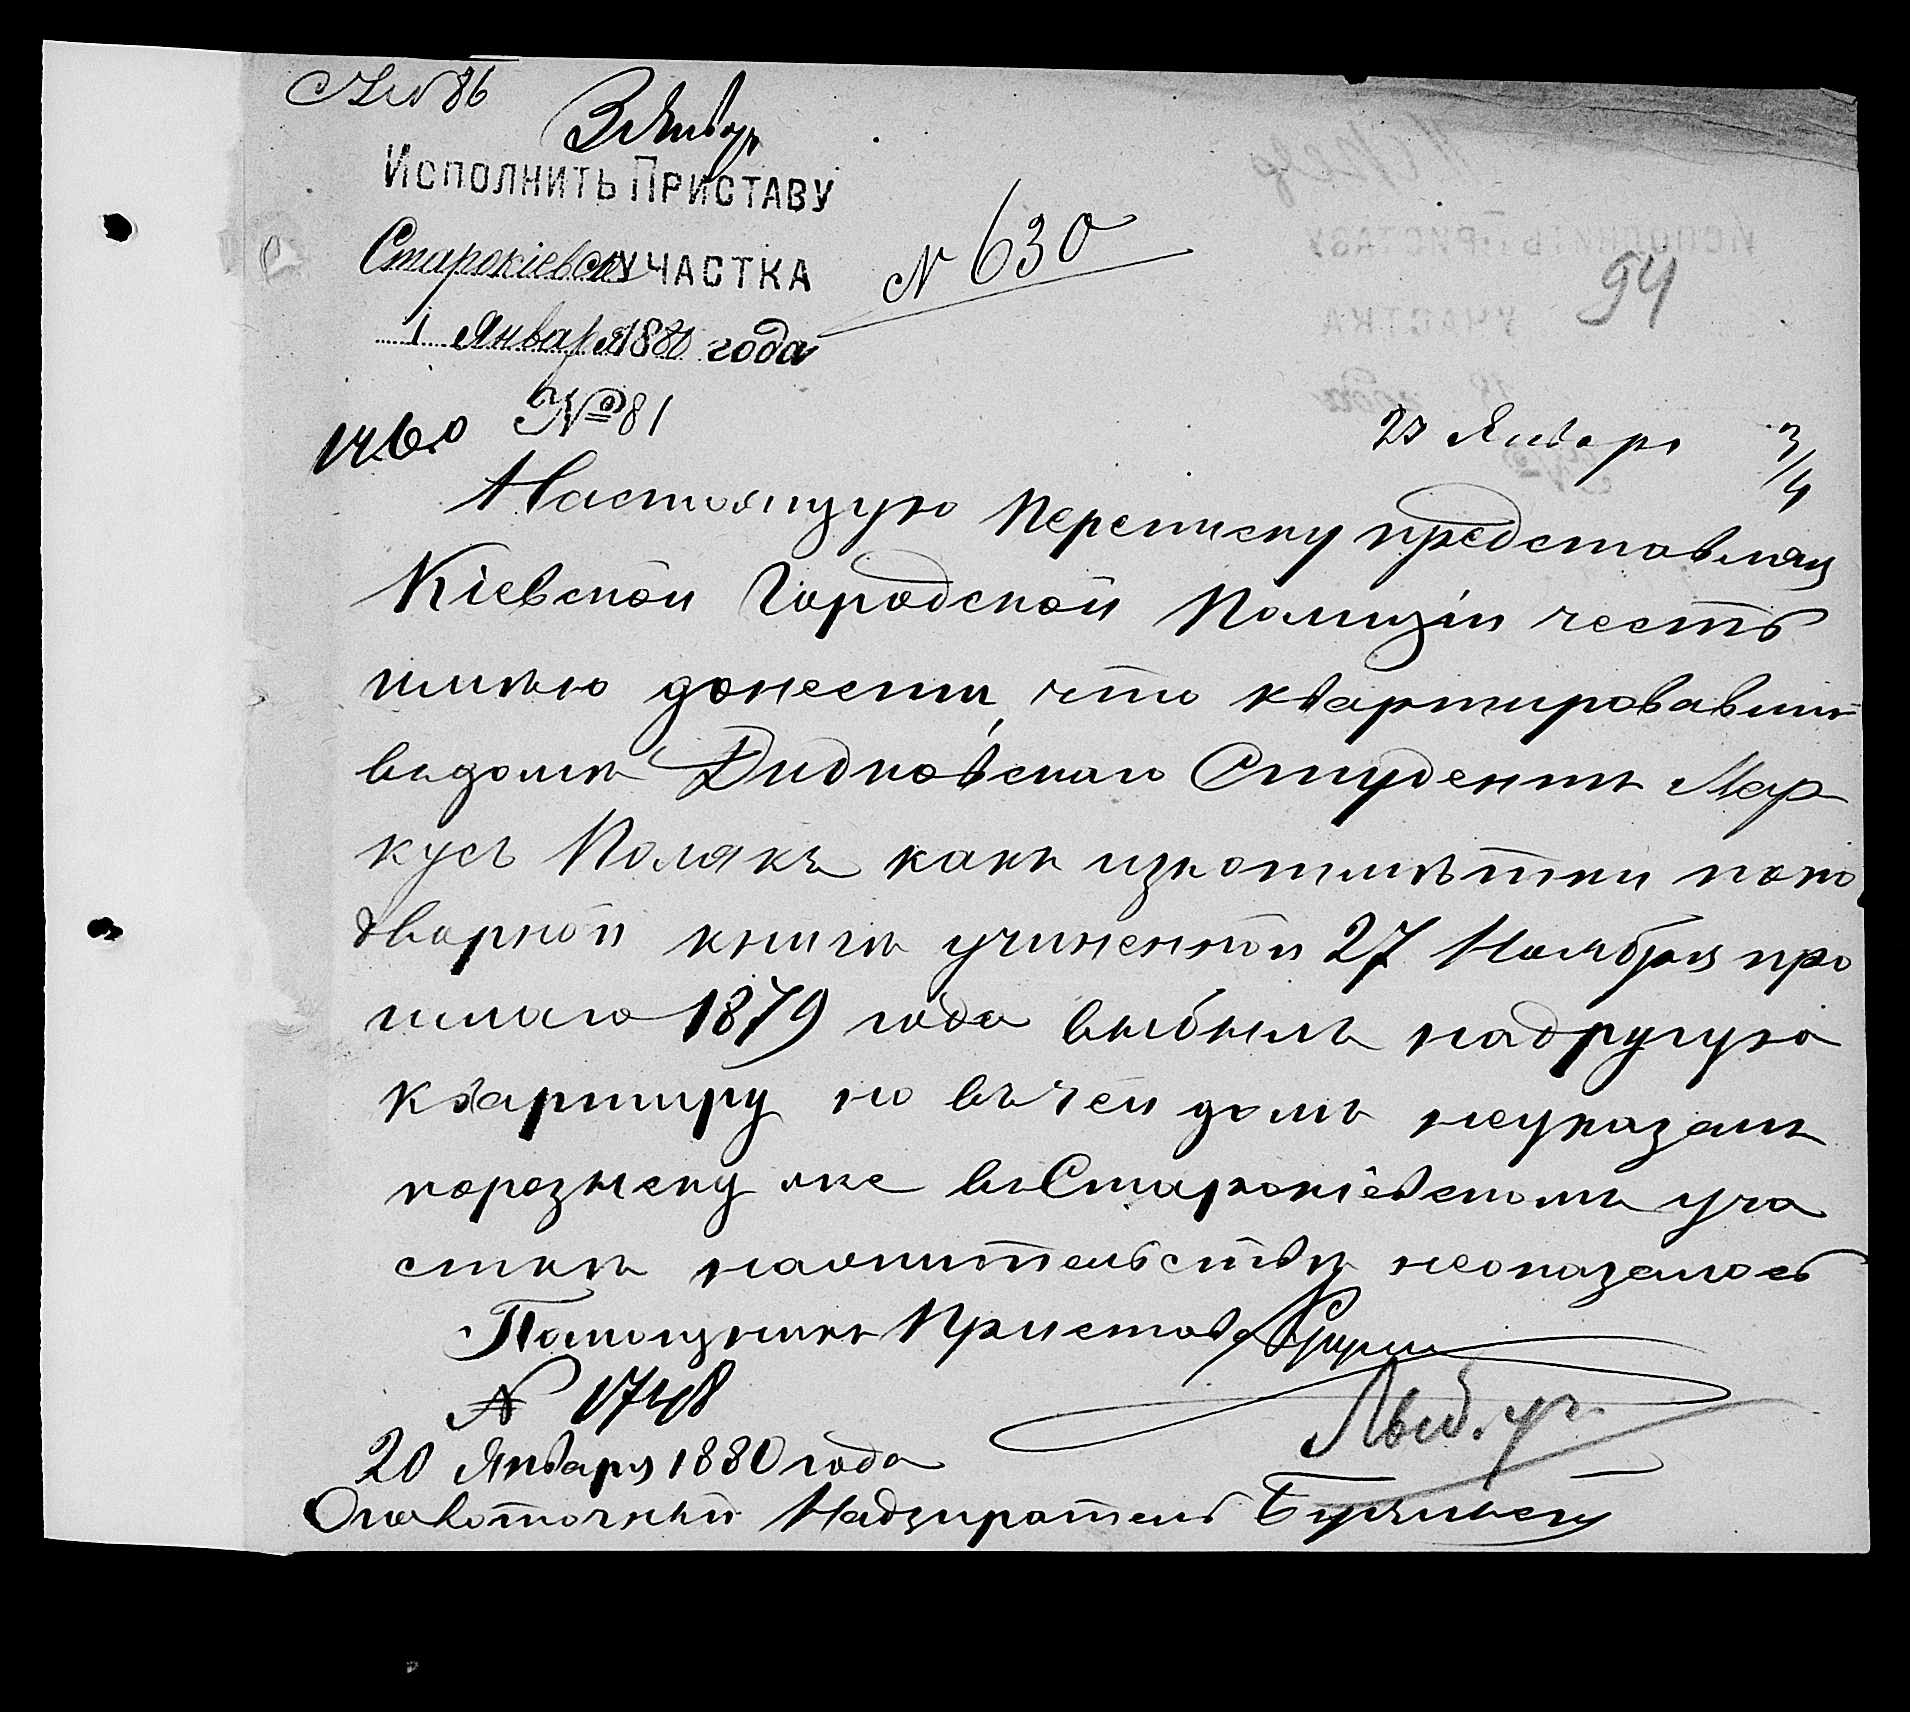 № 86
3 Январ
Исполнить Приставу
Старокіевск участка
1 Января 1880 года
№ 630
94
№ 81
1460
23 Января 3/4
Настоящую переписку представляя
Кіевской Городской Полиціи честь
имѣю донести, что квартировавшій
въ домѣ Дидковскаго Студентъ Мар
кусъ Полякъ какъ изъ отмѣтки по по
дворной книги учиненной 27 Ноября про
шлаго 1879 года выбылъ на другую
квартиру но въ чей домъ неуказанъ
порозыску же въ Старокіевскомъ уча
сткѣ на жительствѣ неоказалось
Помощникъ Пристава
№ 1748
Лыб. уч.
20 Января 1880 года
Околоточный Надзиратель